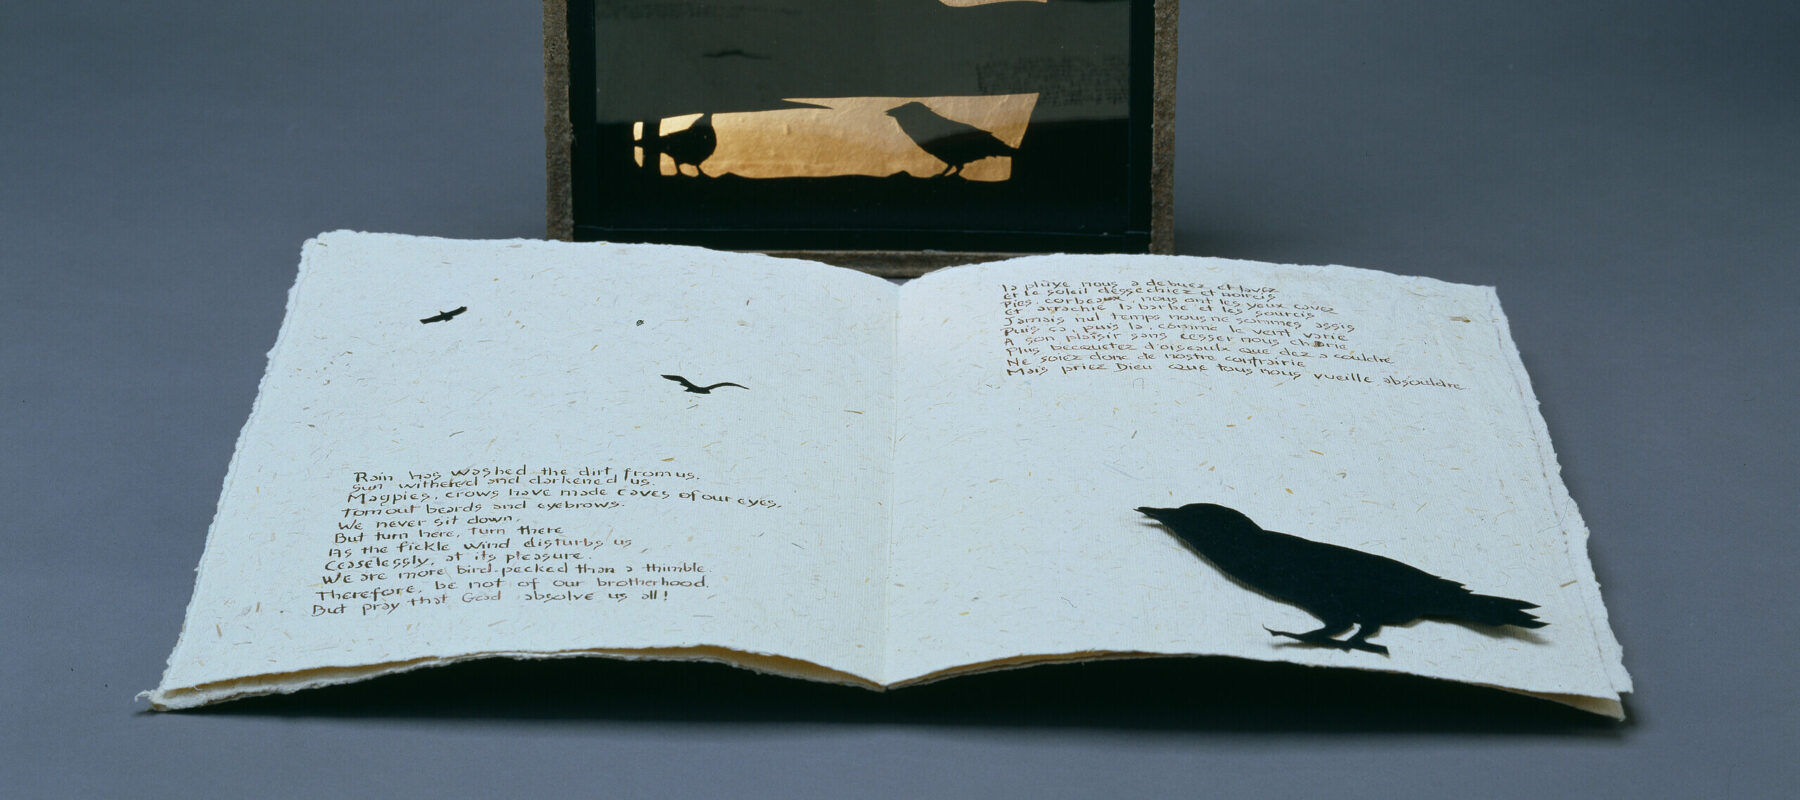 Rain has washed the dirt from us.
Sun withered and darkened us.
Magpies, crows have made caves of our eyes,
Torn out beards and eyebrows.
We never sit down,
But turn here, turn there
As the fickle wind disturbs us
Ceaselessly, at its pleasure.
We are more bird-pecked than a thimble.
Therefore, be not of our brotherhood.
But pray that God absolve us all!
la pluye nous a debuez et lavez
et le soleil dessechiez et noircis
Pies, corbeaux, nous ont les yeux cavez
Et arrachié la barbe et les sourcis
Jamais nul temps nous ne sommes assis
Puis ça, puis la, comme le vent varie
A son plaisir sans cesser nous charie
Plus becquetez d'oiseaulx que dez a couldre
Ne soiez donc de nostre confrairie
Mais priez Dieu que tous nous vueille absouldre